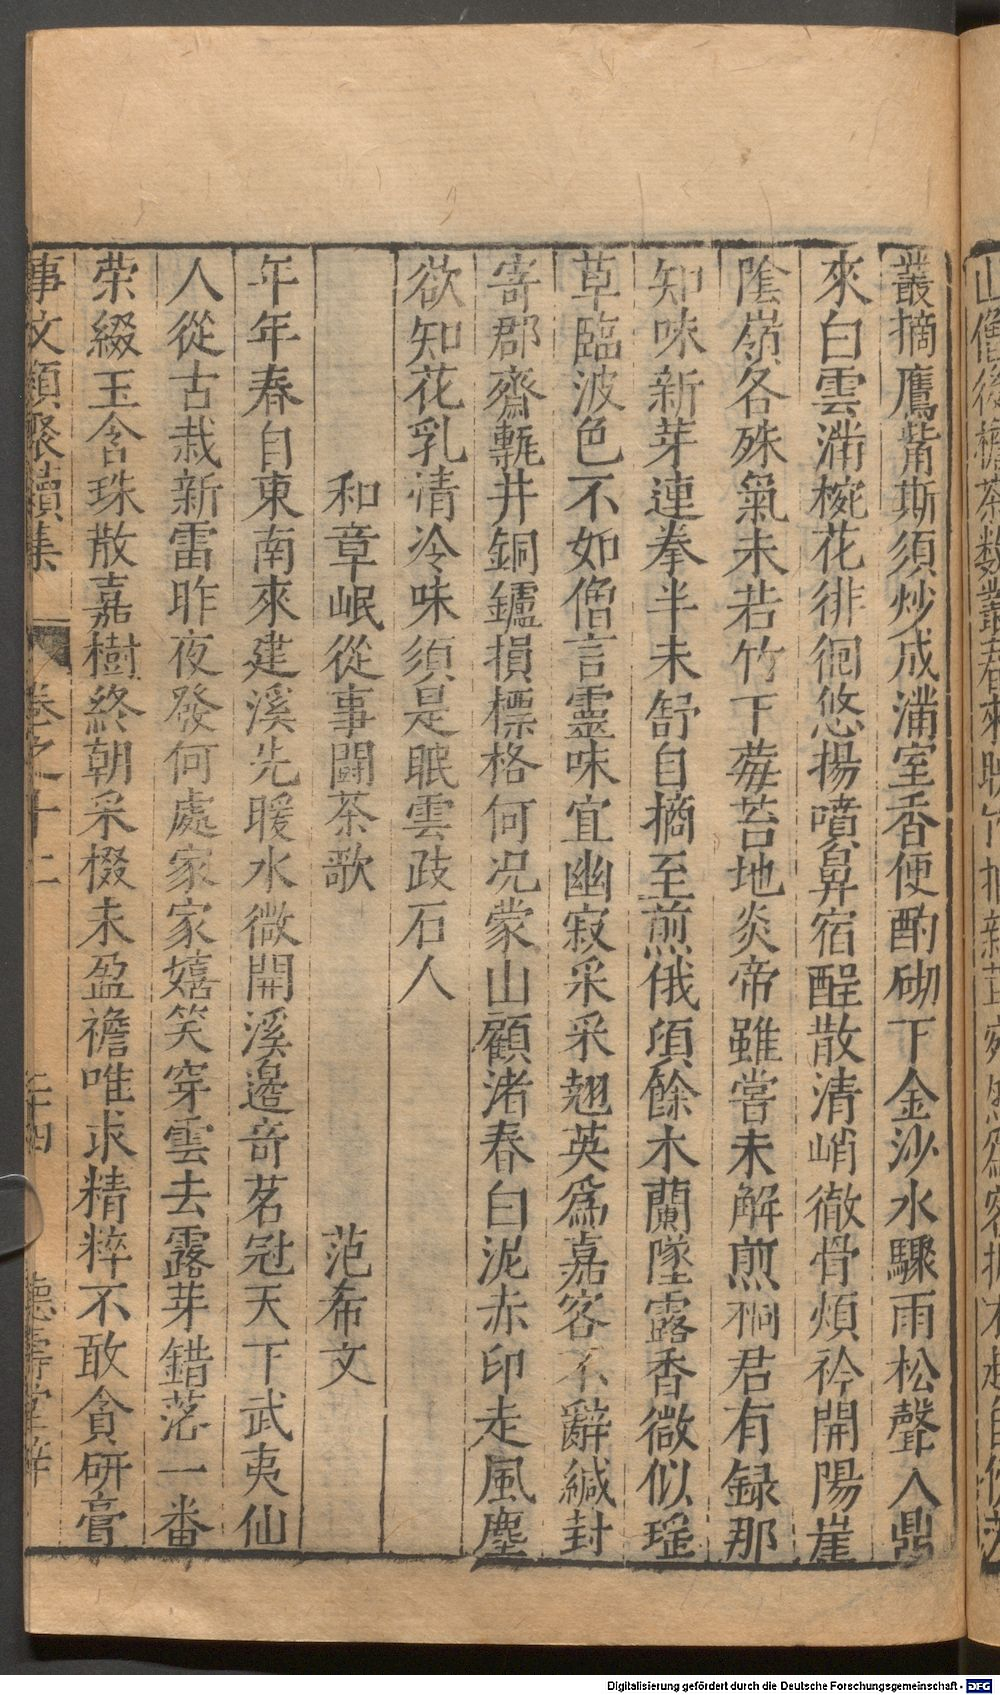 山僧後檐茶數叢春來映竹抽新茸宛然爲客振衣起自傍芳
叢摘鷹觜斯須炒成滿室香便酌砌下金沙水驟雨松聲入鼎
來白雲滿椀花徘徊悠揚噴鼻宿酲散清峭徹骨煩衿開陽崖
陰嶺各殊氣未若竹下莓苔地炎帝雖嘗未解煎桐君有録那
知味新芽連拳半未舒自摘至煎俄頃餘木蘭墜露香微似瑤
草臨波色不如僧言靈味宜幽寂采采翹英爲嘉客不辭緘封
寄郡齋甎井銅鑪損標格何况蒙山顧渚春白泥赤印走風塵
欲知花乳清冷味須是眠雲跂石人
和章岷從事闘茶歌　范希文
年年春自東南來建溪先暖水微開溪邊竒茗冠天下武夷仙
人從古栽新雷昨夜發何處家家嬉笑穿雲去露芽錯落一番
荣綴玉含珠散嘉樹終朝采掇未盈襜唯求精粹不敢貪研膏
事文類聚續集　卷之十二　二十四　德壽堂梓
Digitalisierung gefördert durch die Deutsche Forschungsgemeinschaft - DFG